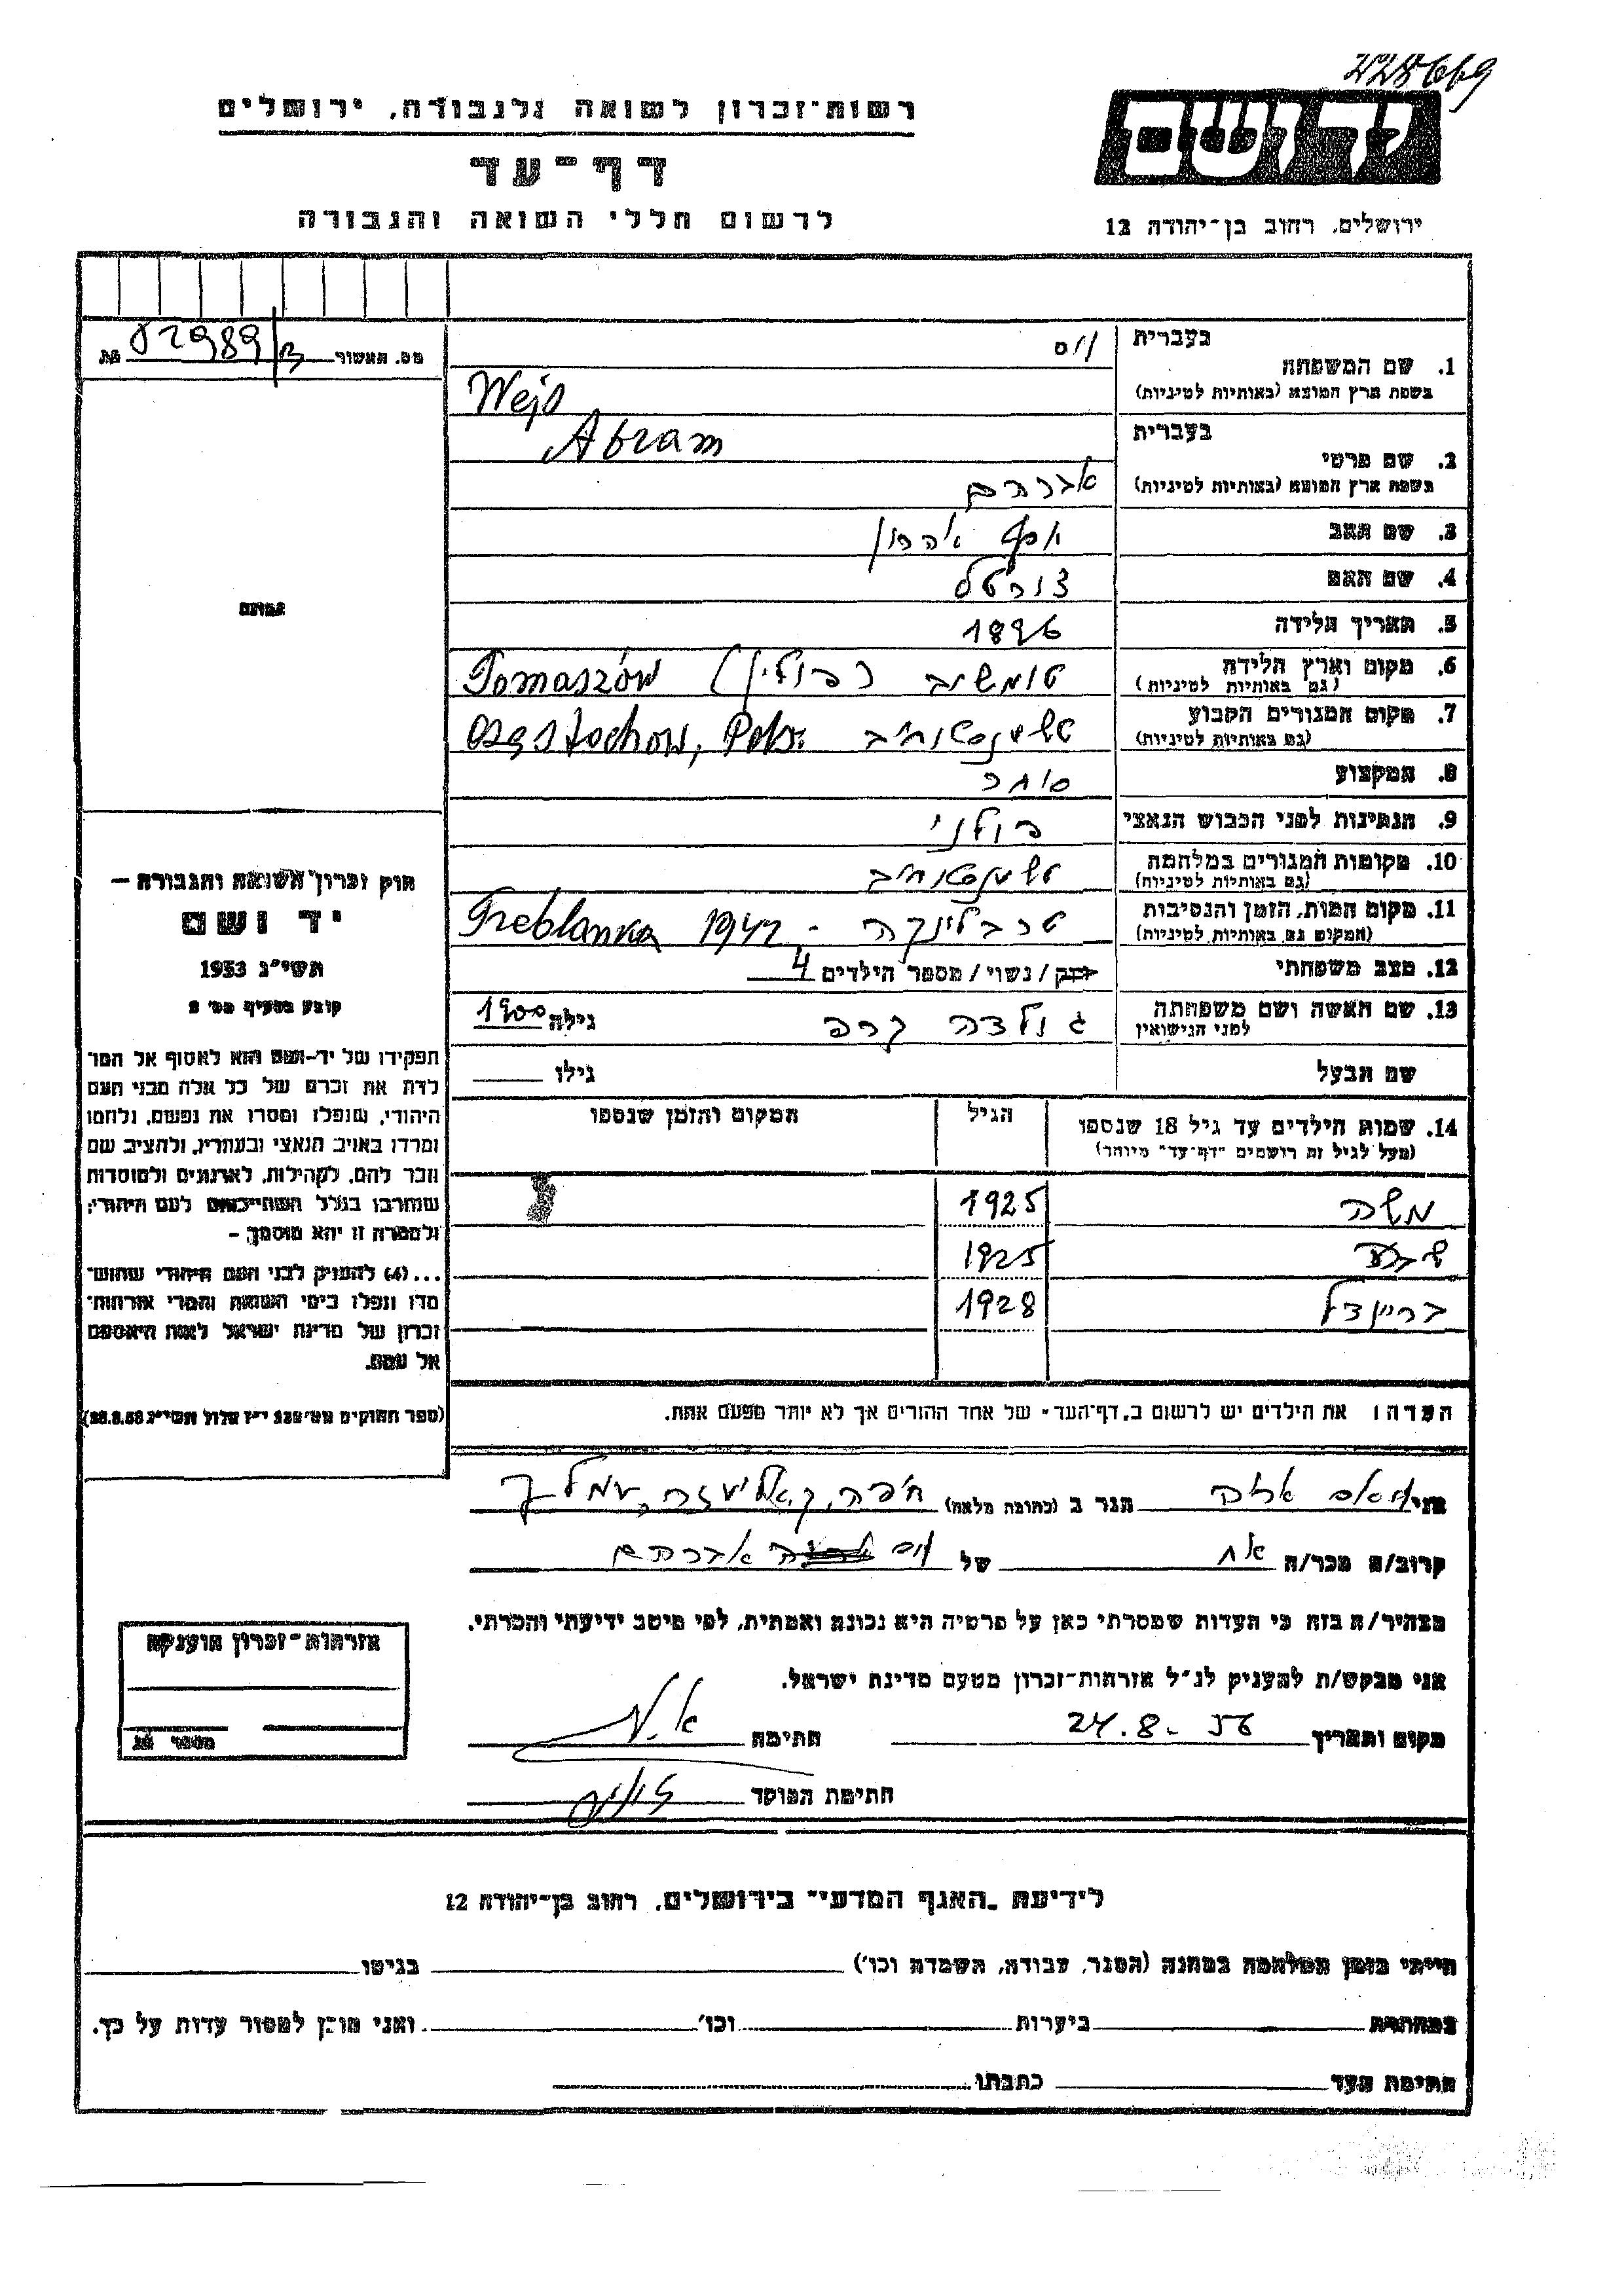 228669
רשות-זכרון לשואה ולגבורה, ירושלים
דף-עד
לרשום חללי השואה והגבורה
יד ושם
ירושלים, רחוב בן-יהודה 12
מס. האשור 02989/
בעברית
1. שם המשפחה
וייס
בשפת ארץ המוצא (באותיות לטיניות)
Wejs
בעברית
Abram
2. שם פרטי
בשפת ארץ המוצא (באותיות לטיניות)
אברהם
3. שם האב
יוסף אהרון
4. שם האם
5. תאריך הלידה
1896
6. מקום וארץ הלידה
(גם באותיות לטיניות)
טומשוב (פולין) Tomaszów
7. מקום המגורים הקבוע
(גם באותיות לטיניות)
טשענסטאחוב Częstochow,
8. המקצוע
סוחר
9. הנתינות לפני הכבוש הנאצי
פולני
10. מקומות המגורים במלחמה
(גם באותיות לטיניות)
טשענסטאחוב
11. מקום המות, הזמן והנסיבות
(המקום גם באותיות לטיניות)
טרבלינקה - 1942 Treblanka
12. מצב משפחתי
רווק / נשוי / מספר הילדים 4
13. שם האשה ושם משפחתה
לפני הנישואין
גולדה קרפ
גילה 1900
שם הבעל
גילו
14. שמות הילדים עד גיל 18 שנספו
(מעל לגיל זה רושמים "דף-עד" מיוחד)
הגיל
המקום והזמן שנספו
משה 1925
1925
בריינדל 1928
הערה: את הילדים יש לרשום ב"דף-העד" של אחד ההורים אך לא יותר מפעם אחת.
תמונה
חוק זכרון השואה והגבורה –
יד ושם
תשי"ג 1953
קובע בסעיף מס' 2
תפקידו של יד-ושם הוא לאסוף אל המו
לדת את זכרם של כל אלה מבני העם
היהודי, שנפלו ומסרו את נפשם, נלחמו
ומרדו באויב הנאצי ובעוזריו, ולהציב שם
וזכר להם, לקהילות, לארגונים ולמוסדות
שנחרבו בגלל השתייכותם לעם היהודי;
ולמטרה זו יהא מוסמך –
...(4) להעניק לבני העם היהודי שהוש־
מדו ונפלו בימי השואה והמרי אזרחות־
זכרון של מדינת ישראל לאות היאספם
אל עמם.
(ספר החוקים מס' 132 י"ז אלול תשי"ג 28.8.53)
אני
הגר ב (כתובת מלאה) חיפה,
קרוב/ה מכר/ה אח של אברהם
מצהיר/ה בזה כי העדות שמסרתי כאן על פרטיה היא נכונה ואמתית, לפי מיטב ידיעתי והכרתי.
אני מבקש/ת להעניק לנ"ל אזרחות-זכרון מטעם מדינת ישראל.
מקום ותאריך 24.8.56 חתימה
חתימת המוסד
אזרחות-זכרון הוענקה
לידיעת "האגף המדעי" בירושלים, רחוב בן-יהודה 12
הייתי בזמן המלחמה במחנה (הסגר, עבודה, השמדה וכו') בגיטו
במחתרת ביערות וכו' ואני מוכן למסור עדות על כך.
חתימת העד כתבתו